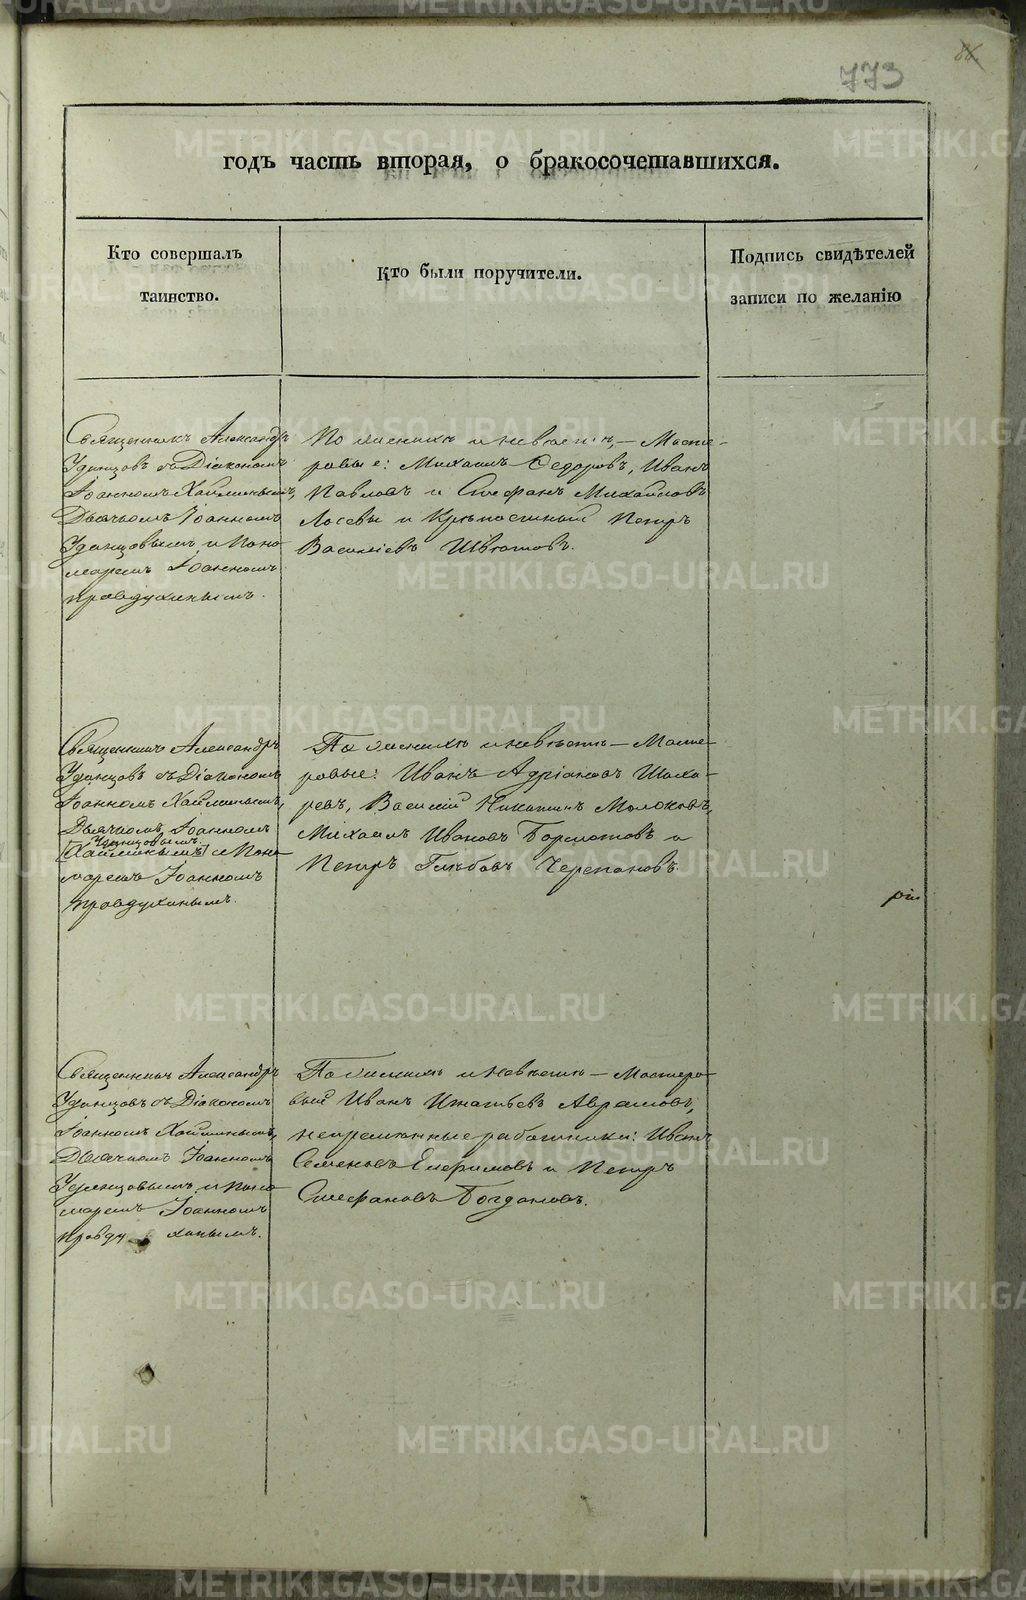 773
86
годъ часть вторая, о бракосочетавшихся.
Кто совершалъ
таинство.
Кто были поручители.
Подпись свидѣтелей
записи по желанію
Священникъ Александръ
Удинцовъ съ Діакономъ
Іоанномъ
Дьячкомъ Іоанномъ
Удинцовымъ и Поно
маремъ Іоанномъ
Правдухинымъ.
По женихѣ и невѣстѣ, – Масте-
ровые: Михаилъ Ѳедоровъ, Иванъ
Павловъ и Стефанъ Михайловъ
Лосевы и Крѣпостный Петръ
Василіевъ
Священникъ Александръ
Удинцовъ съ Діакономъ
Іоанномъ
Дьячкомъ Іоанномъ
Удинцовымъ
и Поно
маремъ Іоанномъ
Правдухинымъ.
По женихѣ и невѣстѣ – Масте-
ровые: Иванъ Адріановъ
Василій Никитинъ Молоковъ,
Михаилъ Ивановъ Бормотовъ и
Петръ Глѣбовъ Черепановъ.
Священникъ Александръ
Удинцовъ съ Діакономъ
Іоанномъ
Дьячкомъ Іоанномъ
Удинцовымъ и Поно
маремъ Іоанномъ
Правду хинымъ.
По женихѣ и невѣстѣ – Мастеро-
вый Иванъ Игнатьевъ Аврамовъ,
непремѣнные работники: Иванъ
Семеновъ Елеѳимовъ и Петръ
Стефановъ Богдановъ.
METRIKI.GASO-URAL.RU